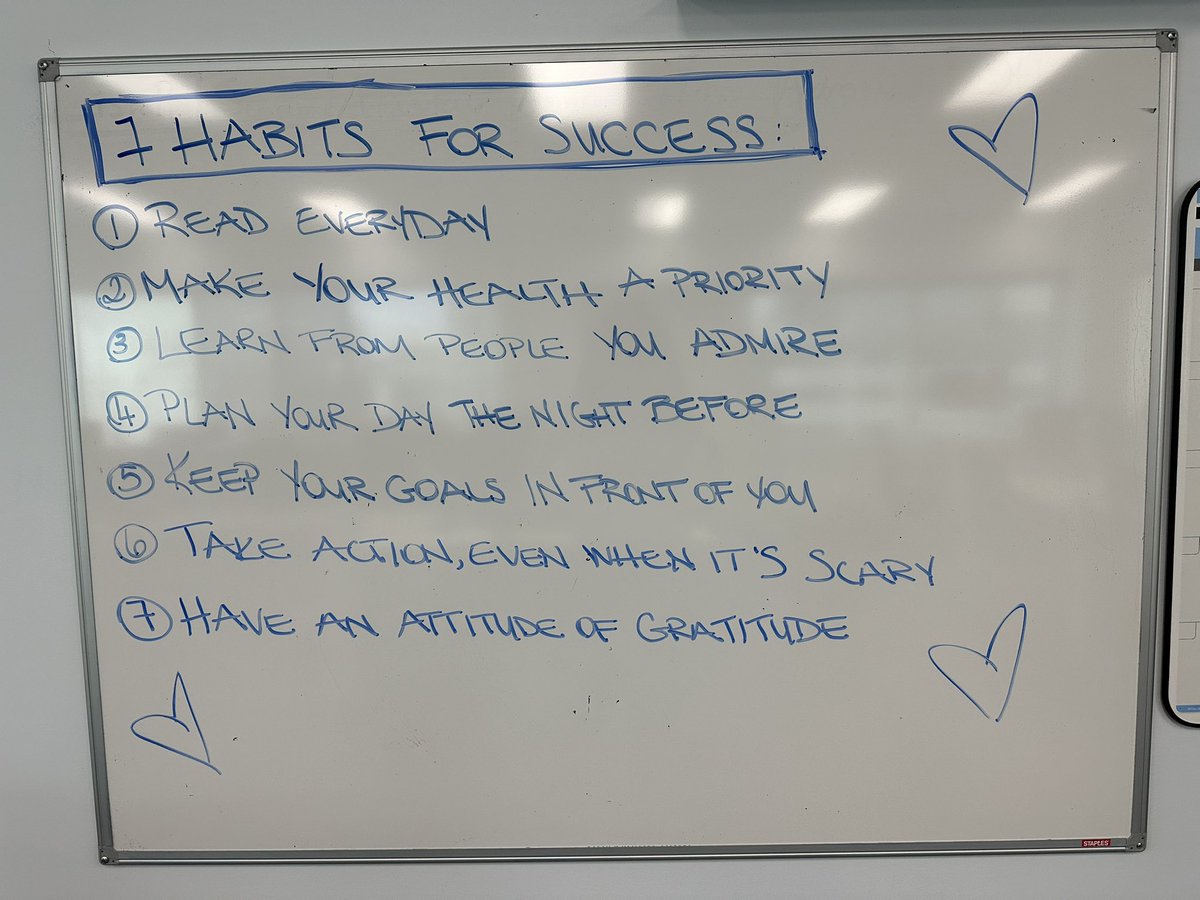 7 HABITS FOR SUCCESS:
① READ EVERYDAY
② MAKE YOUR HEALTH A PRIORITY
③ LEARN FROM PEOPLE YOU ADMIRE
④ PLAN YOUR DAY THE NIGHT BEFORE
⑤ KEEP YOUR GOALS IN FRONT OF YOU
⑥ TAKE ACTION, EVEN WHEN IT'S SCARY
⑦ HAVE AN ATTITUDE OF GRATITUDE
STAPLES